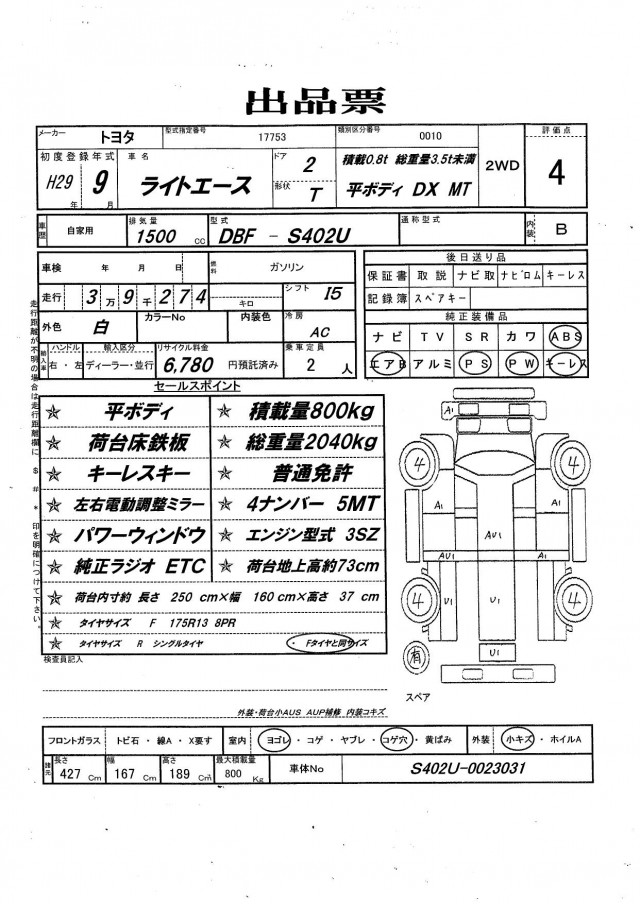 出品票
メーカー トヨタ 型式指定番号 17753 類別区分番号 0010 2WD 評価点 4
初度登録年式 H29 年 9 月 車名 ライトエース ドア 2 形状 T 積載0.8t 総重量3.5t未満
平ボディ DX MT
車歴 自家用 排気量 1500 cc 型式 DBF - S402U 通称型式 内装 B
車検 年 月 日 燃料 ガソリン
走行 3万9千274 キロ シフト I5
外色 白 カラーNo 内装色 冷房 AC
輸入車 ハンドル 右・左 輸入区分 ディーラー・並行 リサイクル料金 6,780 円預託済み 乗車定員 2 人
後日送り品
保証書 取説 ナビ取 ナビロム キーレス
記録簿 スペアキー
純正装備品
ナビ TV SR カワ ABS
エアB アルミ PS PW キーレス
走行距離が不明の場合は走行距離欄に $ # * 印を明確につけて下さい。
セールスポイント
☆ 平ボディ ☆ 積載量800kg
☆ 荷台床鉄板 ☆ 総重量2040kg
☆ キーレスキー ☆ 普通免許
☆ 左右電動調整ミラー ☆ 4ナンバー 5MT
☆ パワーウィンドウ ☆ エンジン型式 3SZ
☆ 純正ラジオ ETC ☆ 荷台地上高約73cm
☆ 荷台内寸約 長さ 250 cm×幅 160cm×高さ 37 cm
☆ タイヤサイズ F 175R13 8PR
☆ タイヤサイズ R シングルタイヤ ・Fタイヤと同サイズ
A1
4 4
A1 AU1 A1
AU1 A1
4 U1 U1 U1 4
有 U1
スペア
検査員記入
外装・荷台小AUS AUP補修 内装コキズ
フロントガラス トビ石・線A・X要す 室内 ヨゴレ・コゲ・ヤブレ・コゲ穴・黄ばみ 外装 小キズ・ホイルA
諸元 長さ 427 Cm 幅 167 Cm 高さ 189 Cm 最大積載量 800 Kg 車体No S402U-0023031